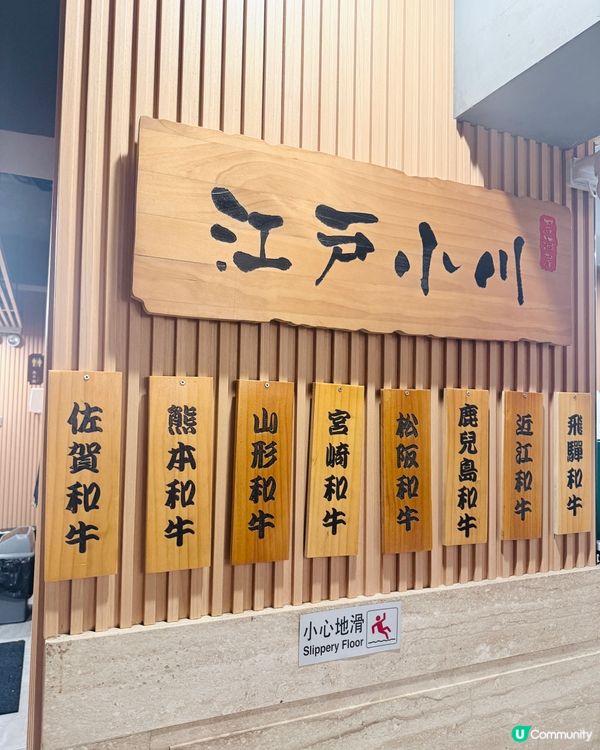 江戸小川
居酒屋
佐賀和牛
熊本和牛
山形和牛
宮崎和牛
松阪和牛
鹿兒島和牛
近江和牛
飛驒和牛
小心地滑
Slippery Floor
U Community